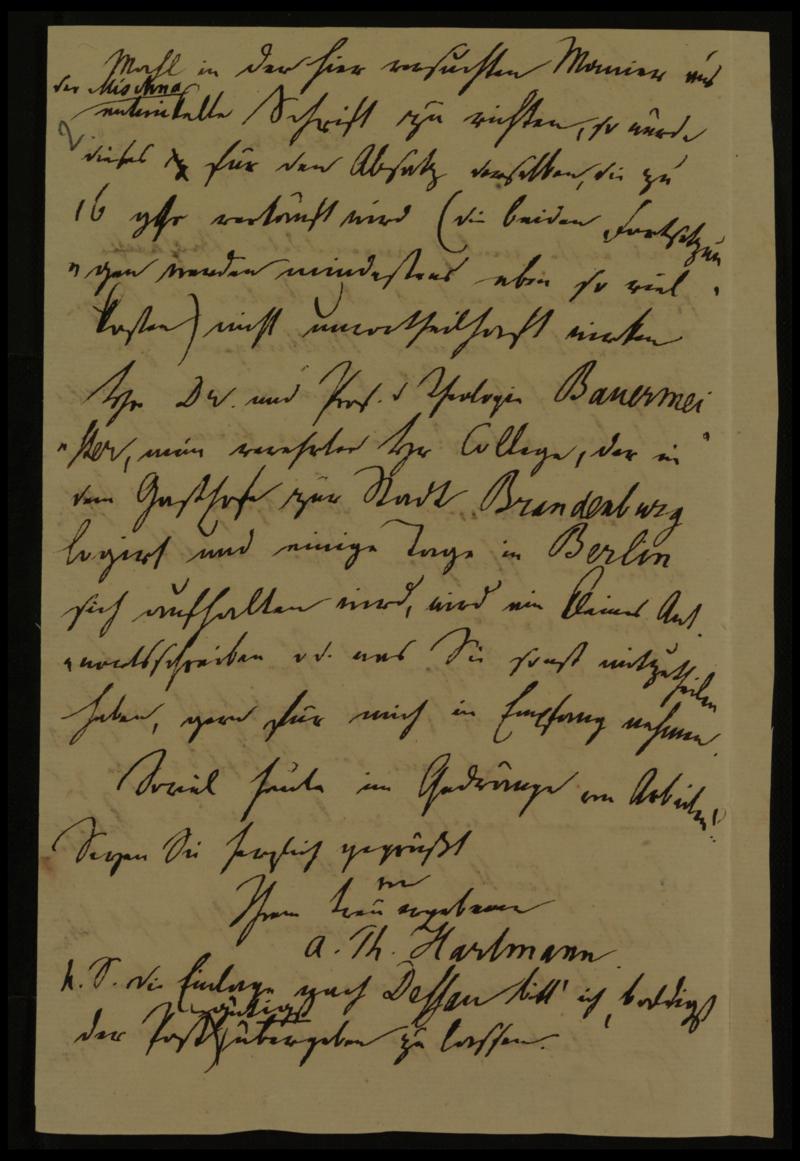 Mahl in der hier versuchten Manier aus
der Mischna
entwickelte Schrift zu richten, so würde
dieses für den Absatz derselben, die zu
16 ggr verkauft wird (die beiden Fortsetzun
"gen werden mindestens eben so viel
kosten) nicht unvortheilhaft wirken
Hr Dr. und Prof. d Theologie Bauermei
"ster, mein verehrter Hr College, der in
dem Gasthofe zur Stadt Brandenburg
logirt und einige Tage in Berlin
sich aufhalten wird, wird ein kleines Ant
"wortschreiben od. was Sie sonst mitzutheilen
haben, gern für mich in Empfang nehmen.
Soviel heute im Gedränge von Arbeiten!
Seyen Sie herzlich gegrüßt
von
Ihrem treu ergebenen
A. Th. Hartmann.
N. S. die Einlage nach Dessau bitt' ich, baldigst
gütigst
der Post übergeben zu lassen.